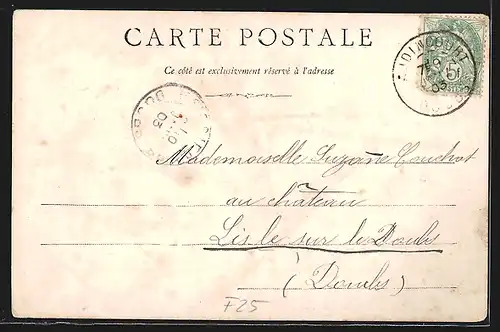 CARTE POSTALE
Ce côté est exclusivement réservé à l'adresse
Mademoiselle Suzanne Couchot
au château
Lisle sur le Doubs
(Doubs)
F25